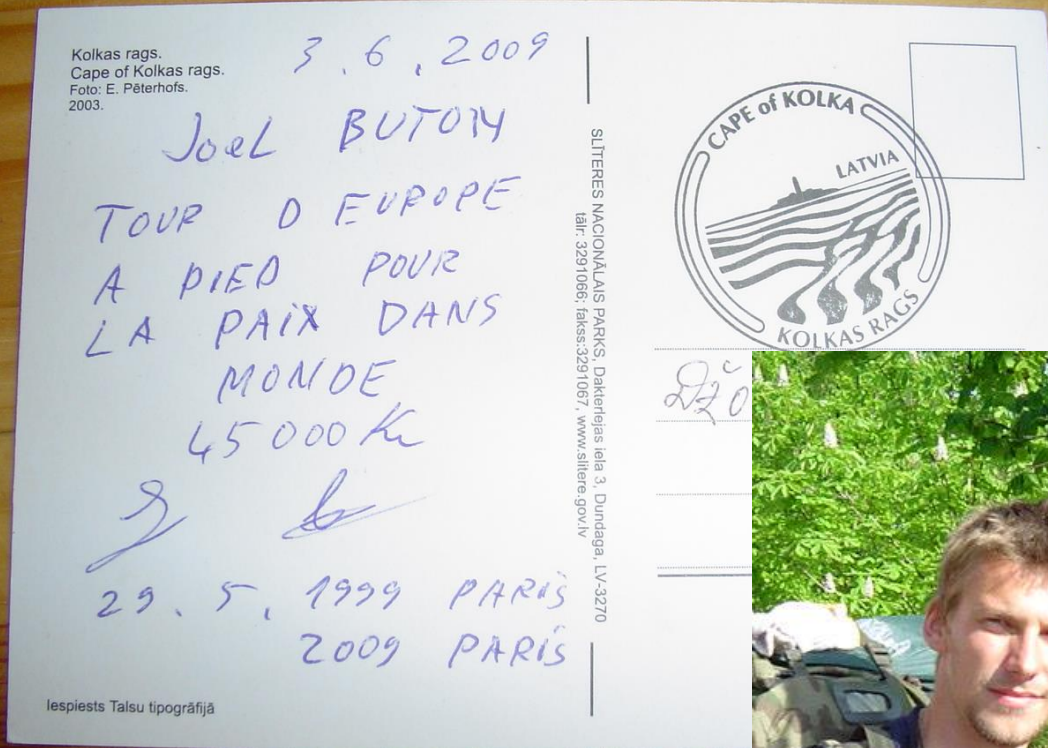 Kolkas rags.
Cape of Kolkas rags.
Foto: E. Pēterhofs.
2003.
3.6.2009
JoeL BUTON
TOUR D EUROPE
A PIED POUR
LA PAIX DANS
MONDE
45000 Km
29.5.1999 PARiS
2009 PARiS
Iespiests Talsu tipogrāfijā
SLĪTERES NACIONĀLAIS PARKS, Dakterlejas iela 3, Dundaga, LV-3270
tālr: 3291066; fakss:3291067, www.slitere.gov.lv
CAPE of KOLKA
LATVIA
KOLKAS RAGS
Džo